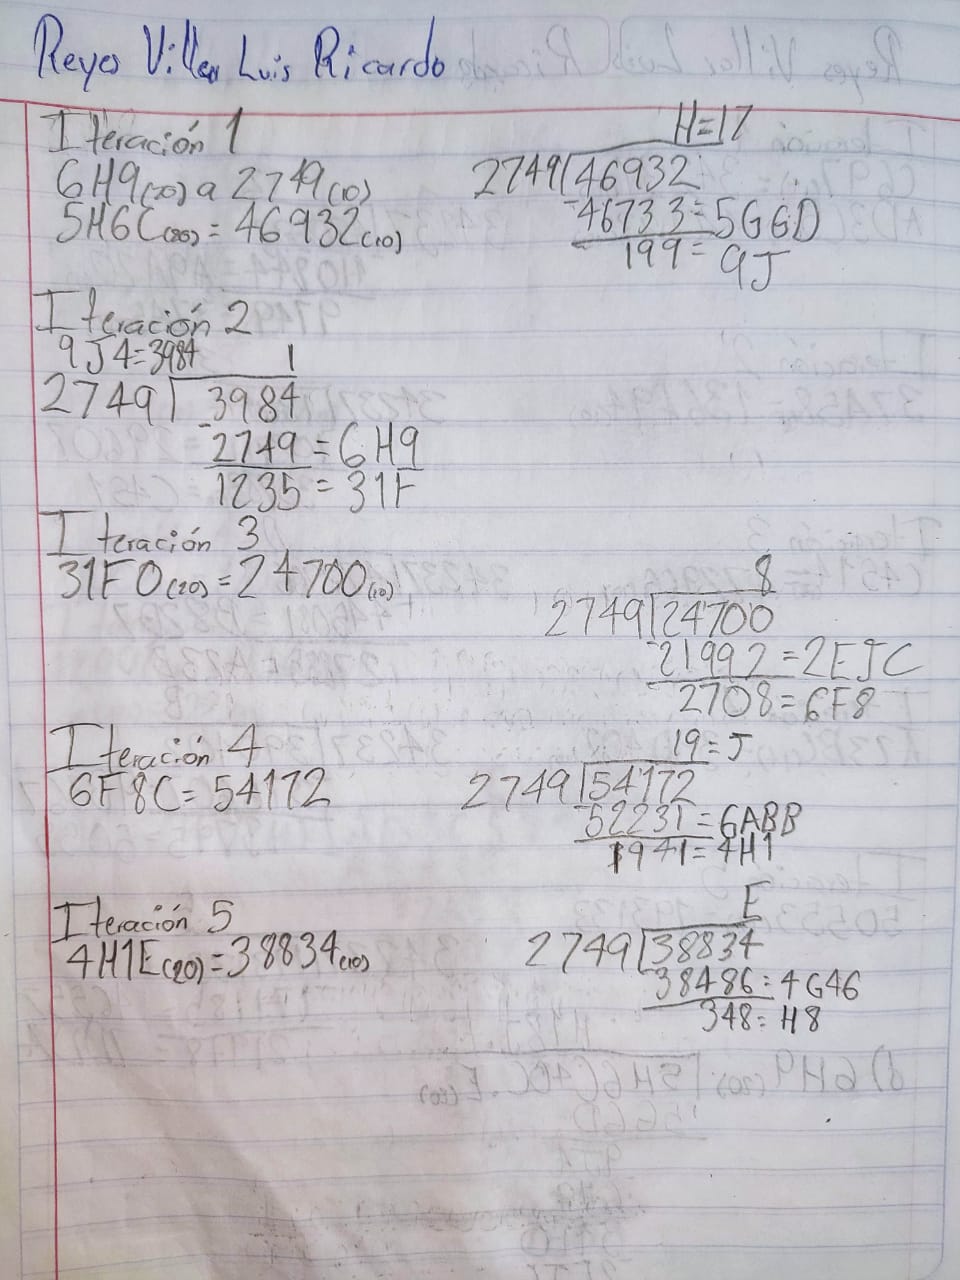 Reyes Villar Luis Ricardo
Iteración 1
6H9(20) a 2749(10)
5H6C(20) = 46932(10)
H=17
2749 46932
-46733=5GGD
199=9J
Iteración 2
9J4=3984
1
2749 3984
-2749=6H9
1235=31F
Iteración 3
31F0(20)=24700(10)
8
2749 24700
-21992=2EJC
2708=6F8
Iteración 4
6F8C=54172
19=J
2749 54172
-52231=6ABB
1941=4H1
Iteración 5
4H1E(20)=38834(10)
E
2749 38834
-38486=4G46
348=H8